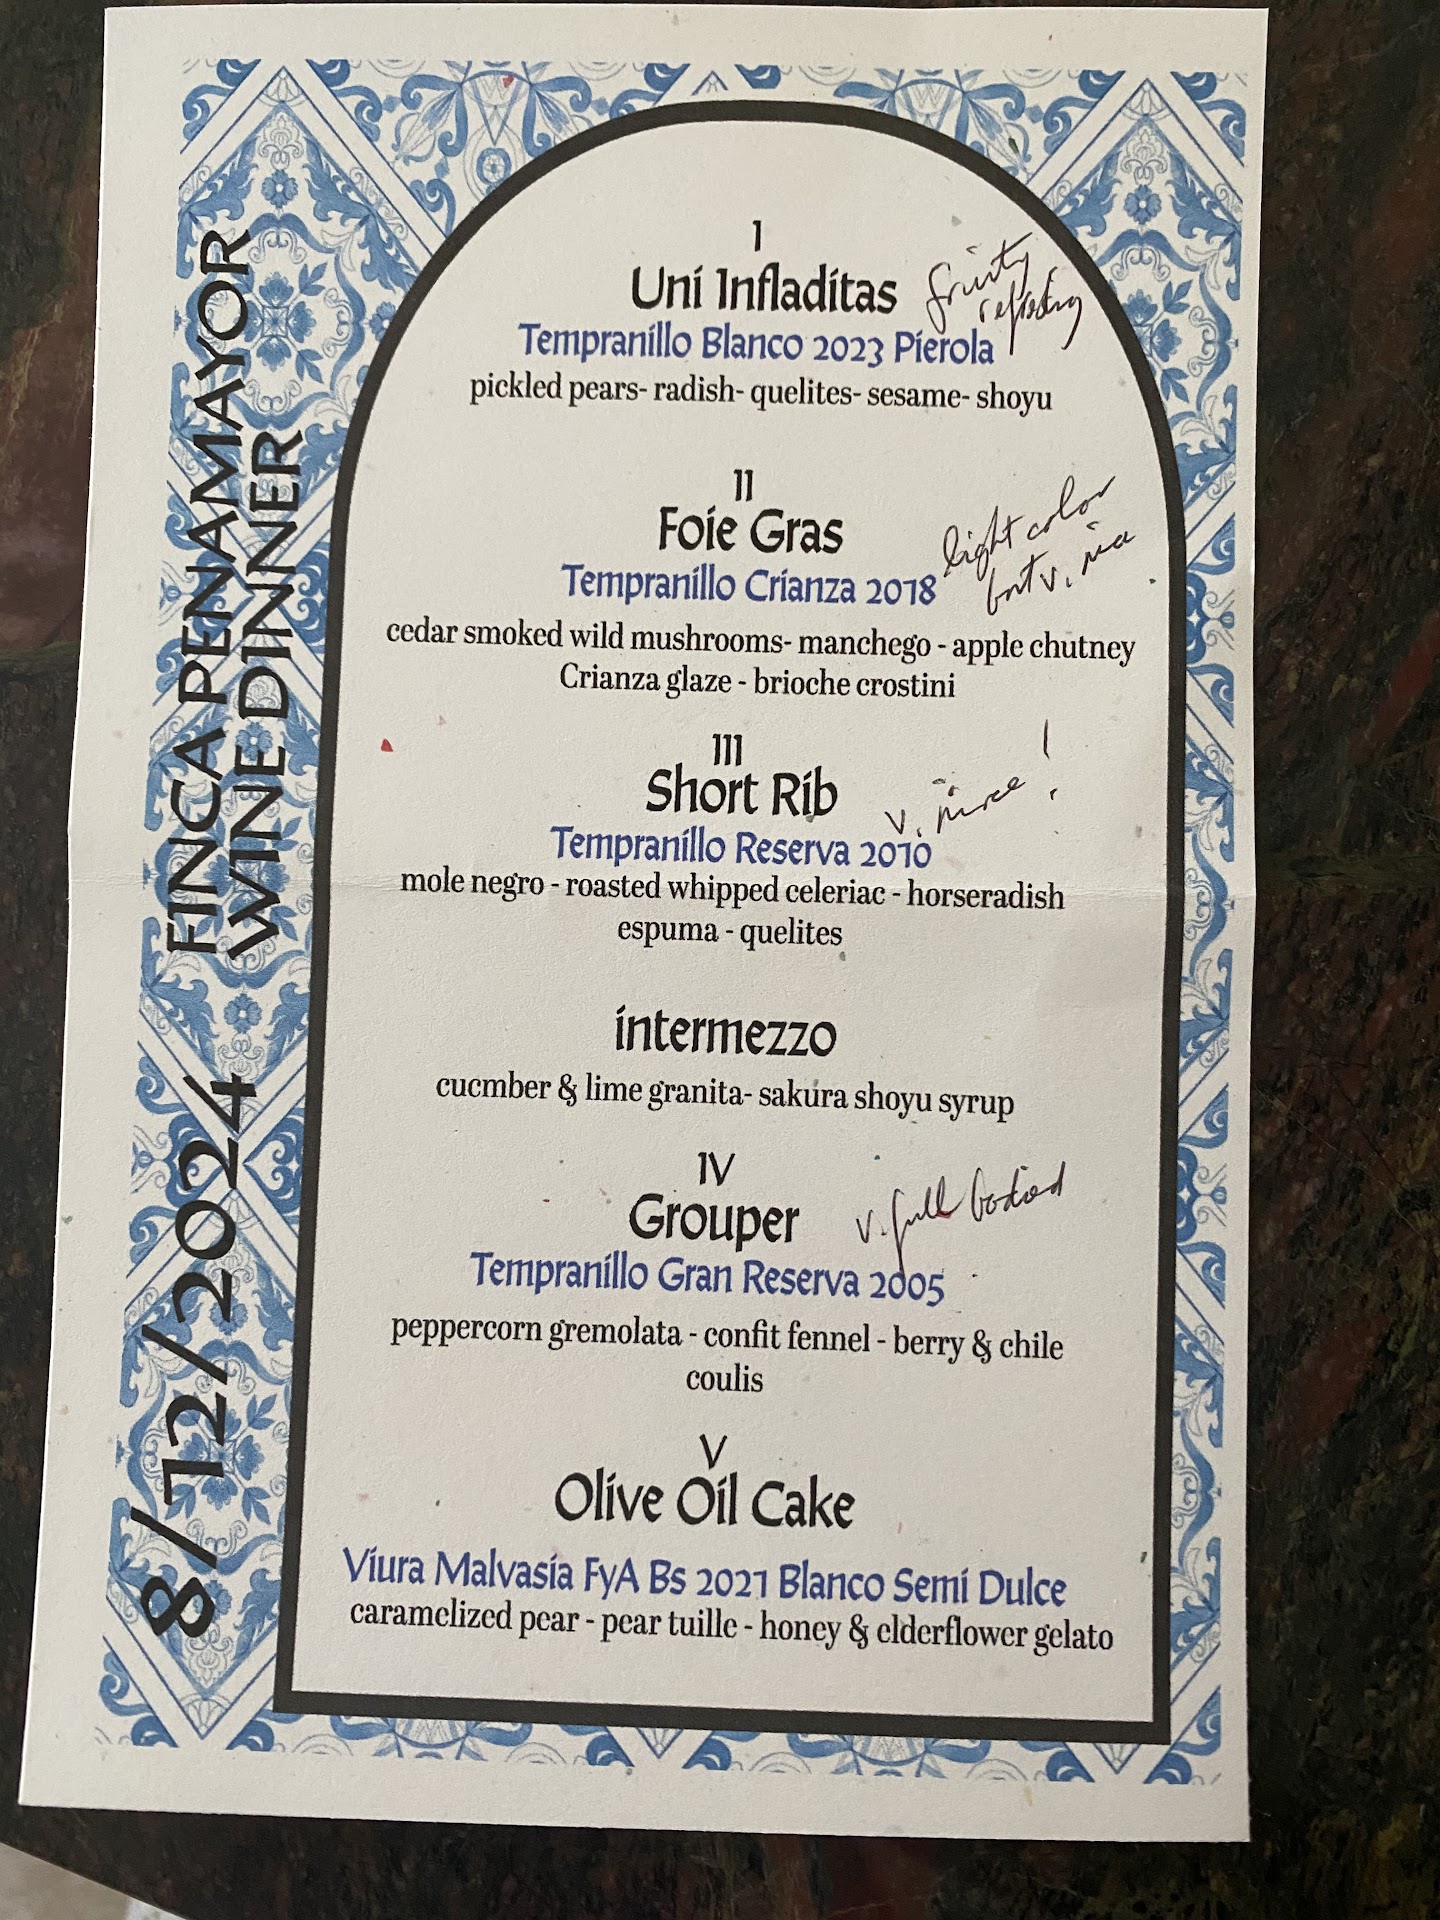 8/12/2024 FINCA PENAMAYOR
WINE DINNER
I
Uni Infladitas
fruity
refreshing
Tempranillo Blanco 2023 Pierola
pickled pears- radish- quelites- sesame- shoyu
II
Foie Gras
light color
but v. nice
Tempranillo Crianza 2018
cedar smoked wild mushrooms- manchego - apple chutney
Crianza glaze - brioche crostini
III
Short Rib
v. nice!
Tempranillo Reserva 2010
mole negro - roasted whipped celeriac - horseradish
espuma - quelites
intermezzo
cucmber & lime granita- sakura shoyu syrup
IV
Grouper
v. full bodied
Tempranillo Gran Reserva 2005
peppercorn gremolata - confit fennel - berry & chile
coulis
V
Olive Oil Cake
Viura Malvasia FyA Bs 2021 Blanco Semi Dulce
caramelized pear - pear tuille - honey & elderflower gelato